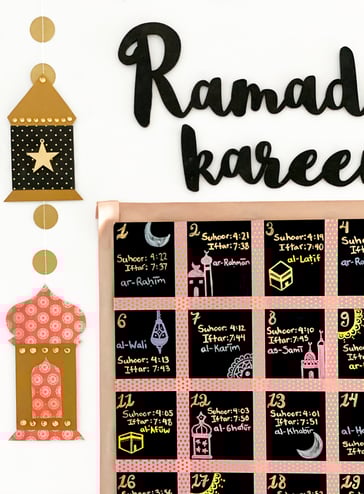 Ramad
karee
1
Suhoor: 4:22
Iftar: 7:37
ar-Raḥīm
2
Suhoor: 4:21
Iftar: 7:38
ar-Raḥmān
3
Suhoor: 4:19
Iftar: 7:40
al-Laṭīf
4
6
al-Wali
Suhoor: 4:13
Iftar: 7:43
7
Suhoor: 4:12
Iftar: 7:44
al-Karīm
8
Suhoor: 4:10
Iftar: 7:45
as-Samī
9
11
Suhoor: 4:05
Iftar: 7:48
al-Afūw
12
Suhoor: 4:03
Iftar: 7:50
al-Ghafūr
13
Suhoor: 4:01
Iftar: 7:51
al-Khabīr
14
16
17
18
19